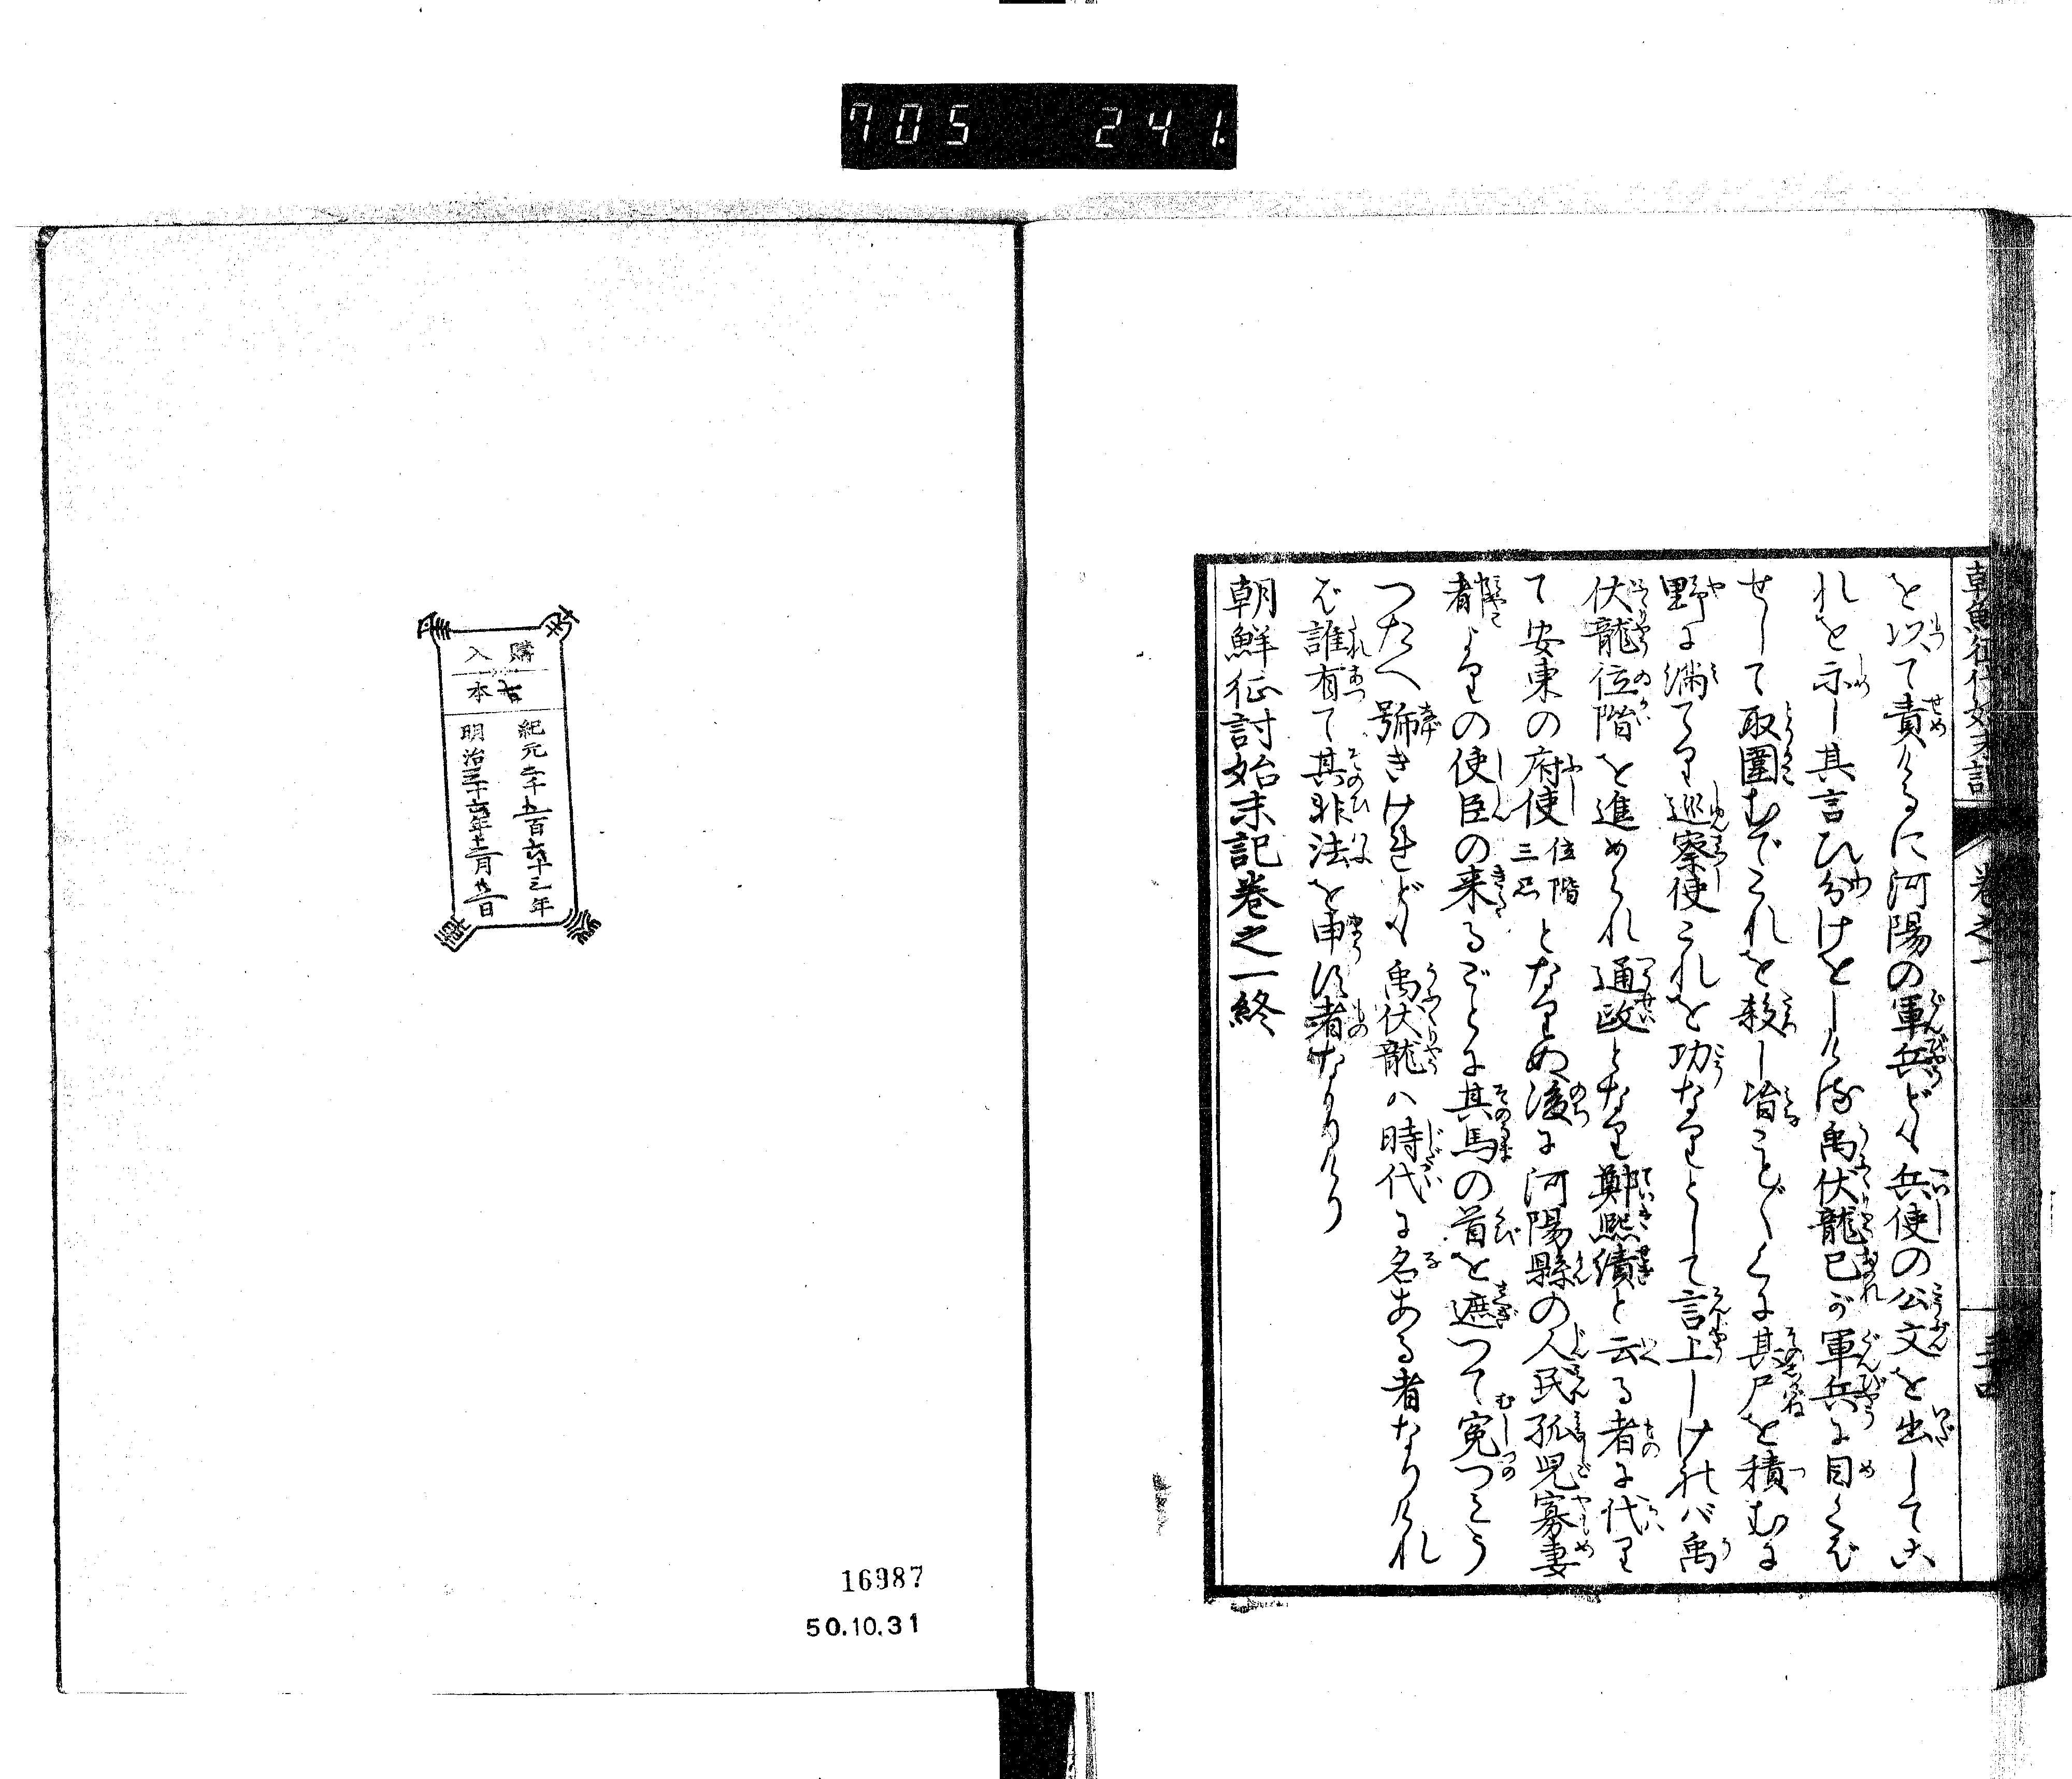 705 241
朝鮮征伐始末記 卷之一
を以て責けるに河陽の軍兵ども兵使の公文を出してこ
れを示し其言ひ分けをしける禹伏龍已が軍兵に目くば
せして取圍むでこれを殺し皆ことごとくに其尸を積むに
野に満てり巡察使これを功なりとして言上しければ禹
伏龍位階を進められ通政となり鄭熙績と云る者に代り
て安東の府使位階三品となりぬ後に河陽縣の人民孤児寡妻
都よりの使臣の来るごとに其馬の首を遮つて寃つみう
つたへ號きけれども禹伏龍ハ時代に名ある者なりけれ
ば誰有て其非法を申す者なかりけり
朝鮮征討始末記卷之一終
購入
古本
紀元二千五百六十三年
明治三十六年十二月廿日
16987
50.10.31